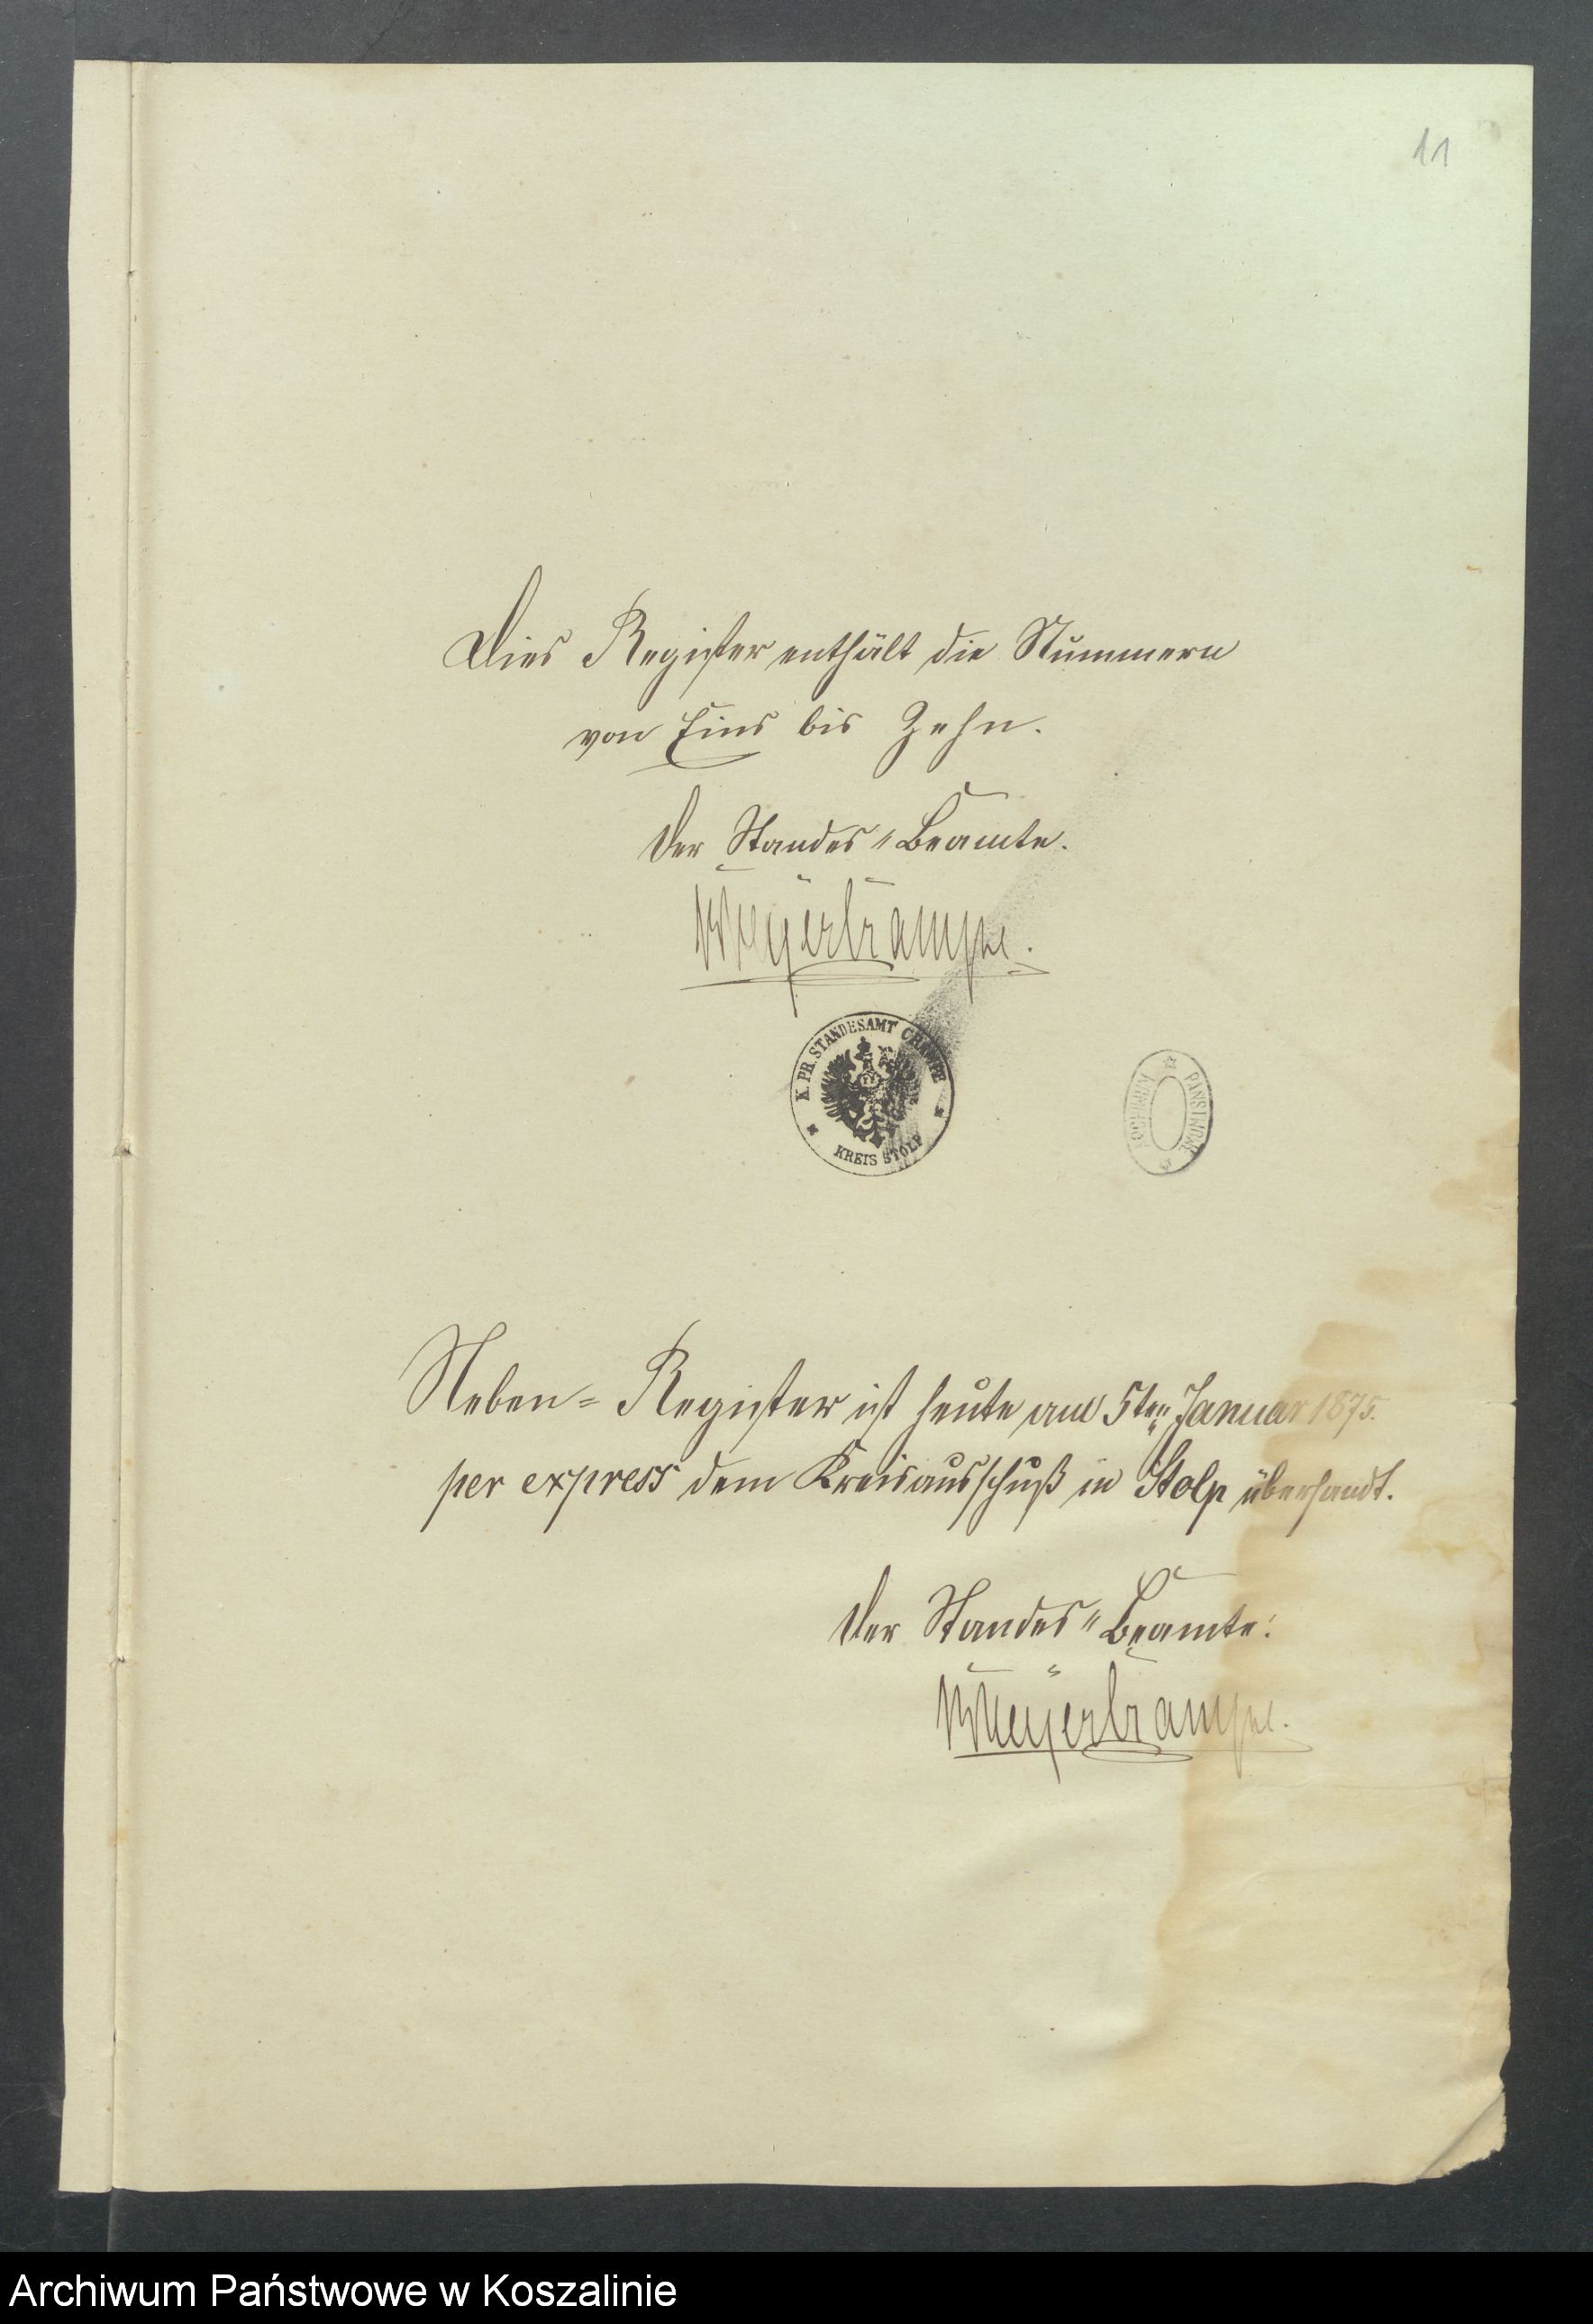 11
Dies Register enthält die Nummern
von Eins bis Zehn.
Der Standes=Beamte.
K. PR. STANDESAMT
KREIS STOLP
ARCHIWUM PAŃSTWOWE
Neben=Register ist heute am 5ten Januar 1875.
per express dem Kreisausschuß in Stolp übersandt.
Der Standes=Beamte:
Archiwum Państwowe w Koszalinie